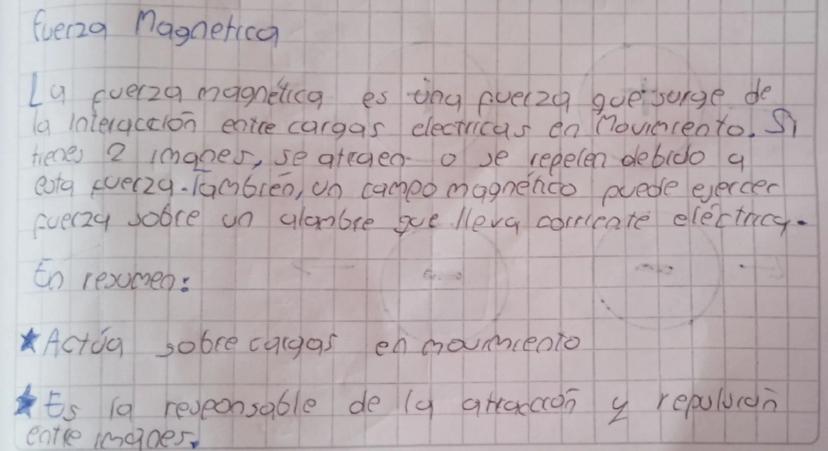 Fuerza Magnetica
La fuerza magnética es una fuerza que surge de
la interacción entre cargas electricas en Movimiento. Si
tienes 2 imanes, se atraen o se repelen debido a
esta fuerza. También, un campo magnético puede ejercer
fuerza sobre un alambre que lleva corriente eléctrica.
En resumen:
★Actúa sobre cargas en movimiento
★Es la responsable de la atracción y repulsión
entre imanes.